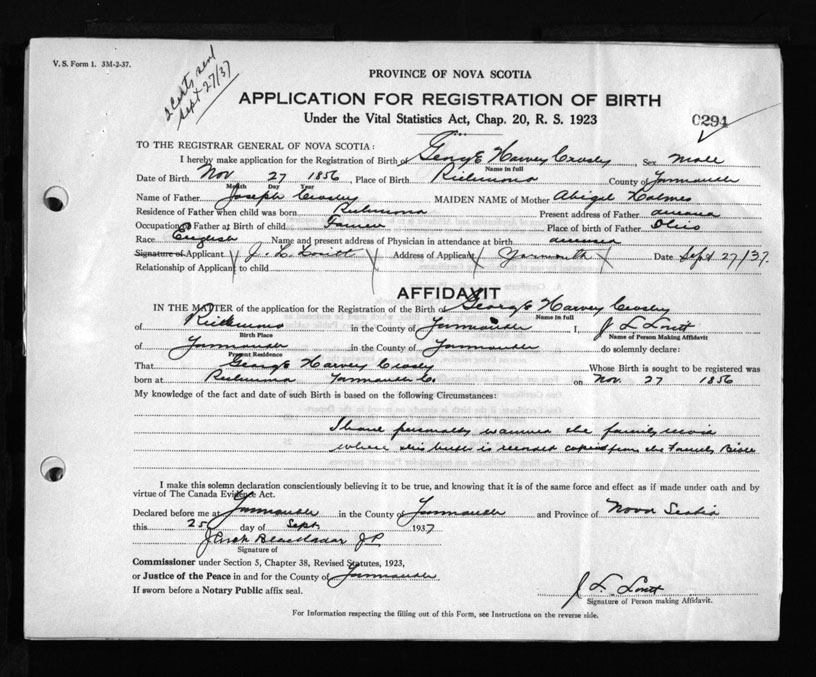 V. S. Form 1. 3M-2-37.
2 Certs send
Sept 27/37
PROVINCE OF NOVA SCOTIA
APPLICATION FOR REGISTRATION OF BIRTH
Under the Vital Statistics Act, Chap. 20, R. S. 1923
0294
TO THE REGISTRAR GENERAL OF NOVA SCOTIA:
I hereby make application for the Registration of Birth of George Harvey Crosby Sex male
Name in full
Date of Birth Nov 27 1856, Place of Birth Richmond County of Yarmouth
Month Day Year
Name of Father Joseph Crosby MAIDEN NAME of Mother Abigil Holmes
Residence of Father when child was born Richmond Present address of Father deceased
Occupation of Father at Birth of child Farmer Place of birth of Father Ohio
Race English Name and present address of Physician in attendance at birth deceased
Signature of Applicant J. L. Lovitt Address of Applicant Yarmouth Date Sept 27/37.
Relationship of Applicant to child
AFFIDAVIT
IN THE MATTER of the application for the Registration of the Birth of George Harvey Crosby
Name in full
of Richmond in the County of Yarmouth I, J L Lovitt
Birth Place Name of Person Making Affidavit
of Yarmouth in the County of Yarmouth do solemnly declare:
Present Residence
That George Harvey Crosby Whose Birth is sought to be registered was
born at Richmond Yarmouth Co. on Nov. 27 1856
My knowledge of the fact and date of such Birth is based on the following Circumstances:
I have personally examined the family record
where this birth is recorded copied from the Family Bible
I make this solemn declaration conscientiously believing it to be true, and knowing that it is of the same force and effect as if made under oath and by
virtue of The Canada Evidence Act.
Declared before me at Yarmouth in the County of Yarmouth and Province of Nova Scotia
this 25 day of Sept 1937
Blackadar JP
Signature of
Commissioner under Section 5, Chapter 38, Revised Statutes, 1923,
or Justice of the Peace in and for the County of Yarmouth
If sworn before a Notary Public affix seal.
J. L. Lovitt
Signature of Person making Affidavit.
For Information respecting the filling out of this Form, see Instructions on the reverse side.